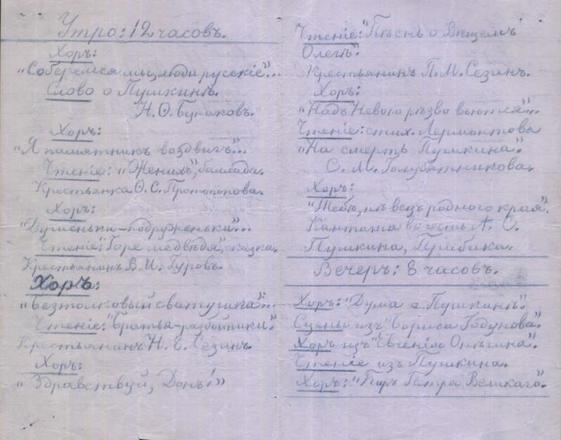 Утро: 12 часовъ.
Хоръ:
"Соберемся мы, люди русскіе"...
Слово о Пушкинѣ.
Н. Ѳ. Бунаковъ.
Хоръ:
"Я памятникъ воздвигъ"...
Чтеніе: "Женихъ", баллада.
Крестьянка Ѳ. С. Протопопова.
Хоръ:
"Думеньки-подруженьки"...
Чтеніе: "Горе медвѣдя", сказка.
Крестьянинъ В. И. Гуровъ.
Хоръ:
"Безтолковый сватушка"...
Чтеніе: "Братья-разбойники".
Крестьянинъ Н. Е. Сезинъ.
Хоръ:
"Здравствуй, Донъ!"
Чтеніе: "Пѣснь о Вѣщемъ
Олегѣ".
Крестьянинъ П. М. Сезинъ.
Хоръ:
"Надъ Невою рѣзво вьются"...
Чтеніе: стих. Лермонтова
"На смерть Пушкина".
О. М. Голубятникова.
Хоръ:
"Тебя, пѣвецъ родного края".
Кантата въ честь А. С.
Пушкина, Грибика.
Вечеръ: 8 часовъ.
Хоръ: "Дума о Пушкинѣ".
Сцены изъ "Бориса Годунова".
Хоръ изъ "Евгенія Онѣгина".
Чтеніе изъ Пушкина.
Хоръ: "Пиръ Петра Великаго".